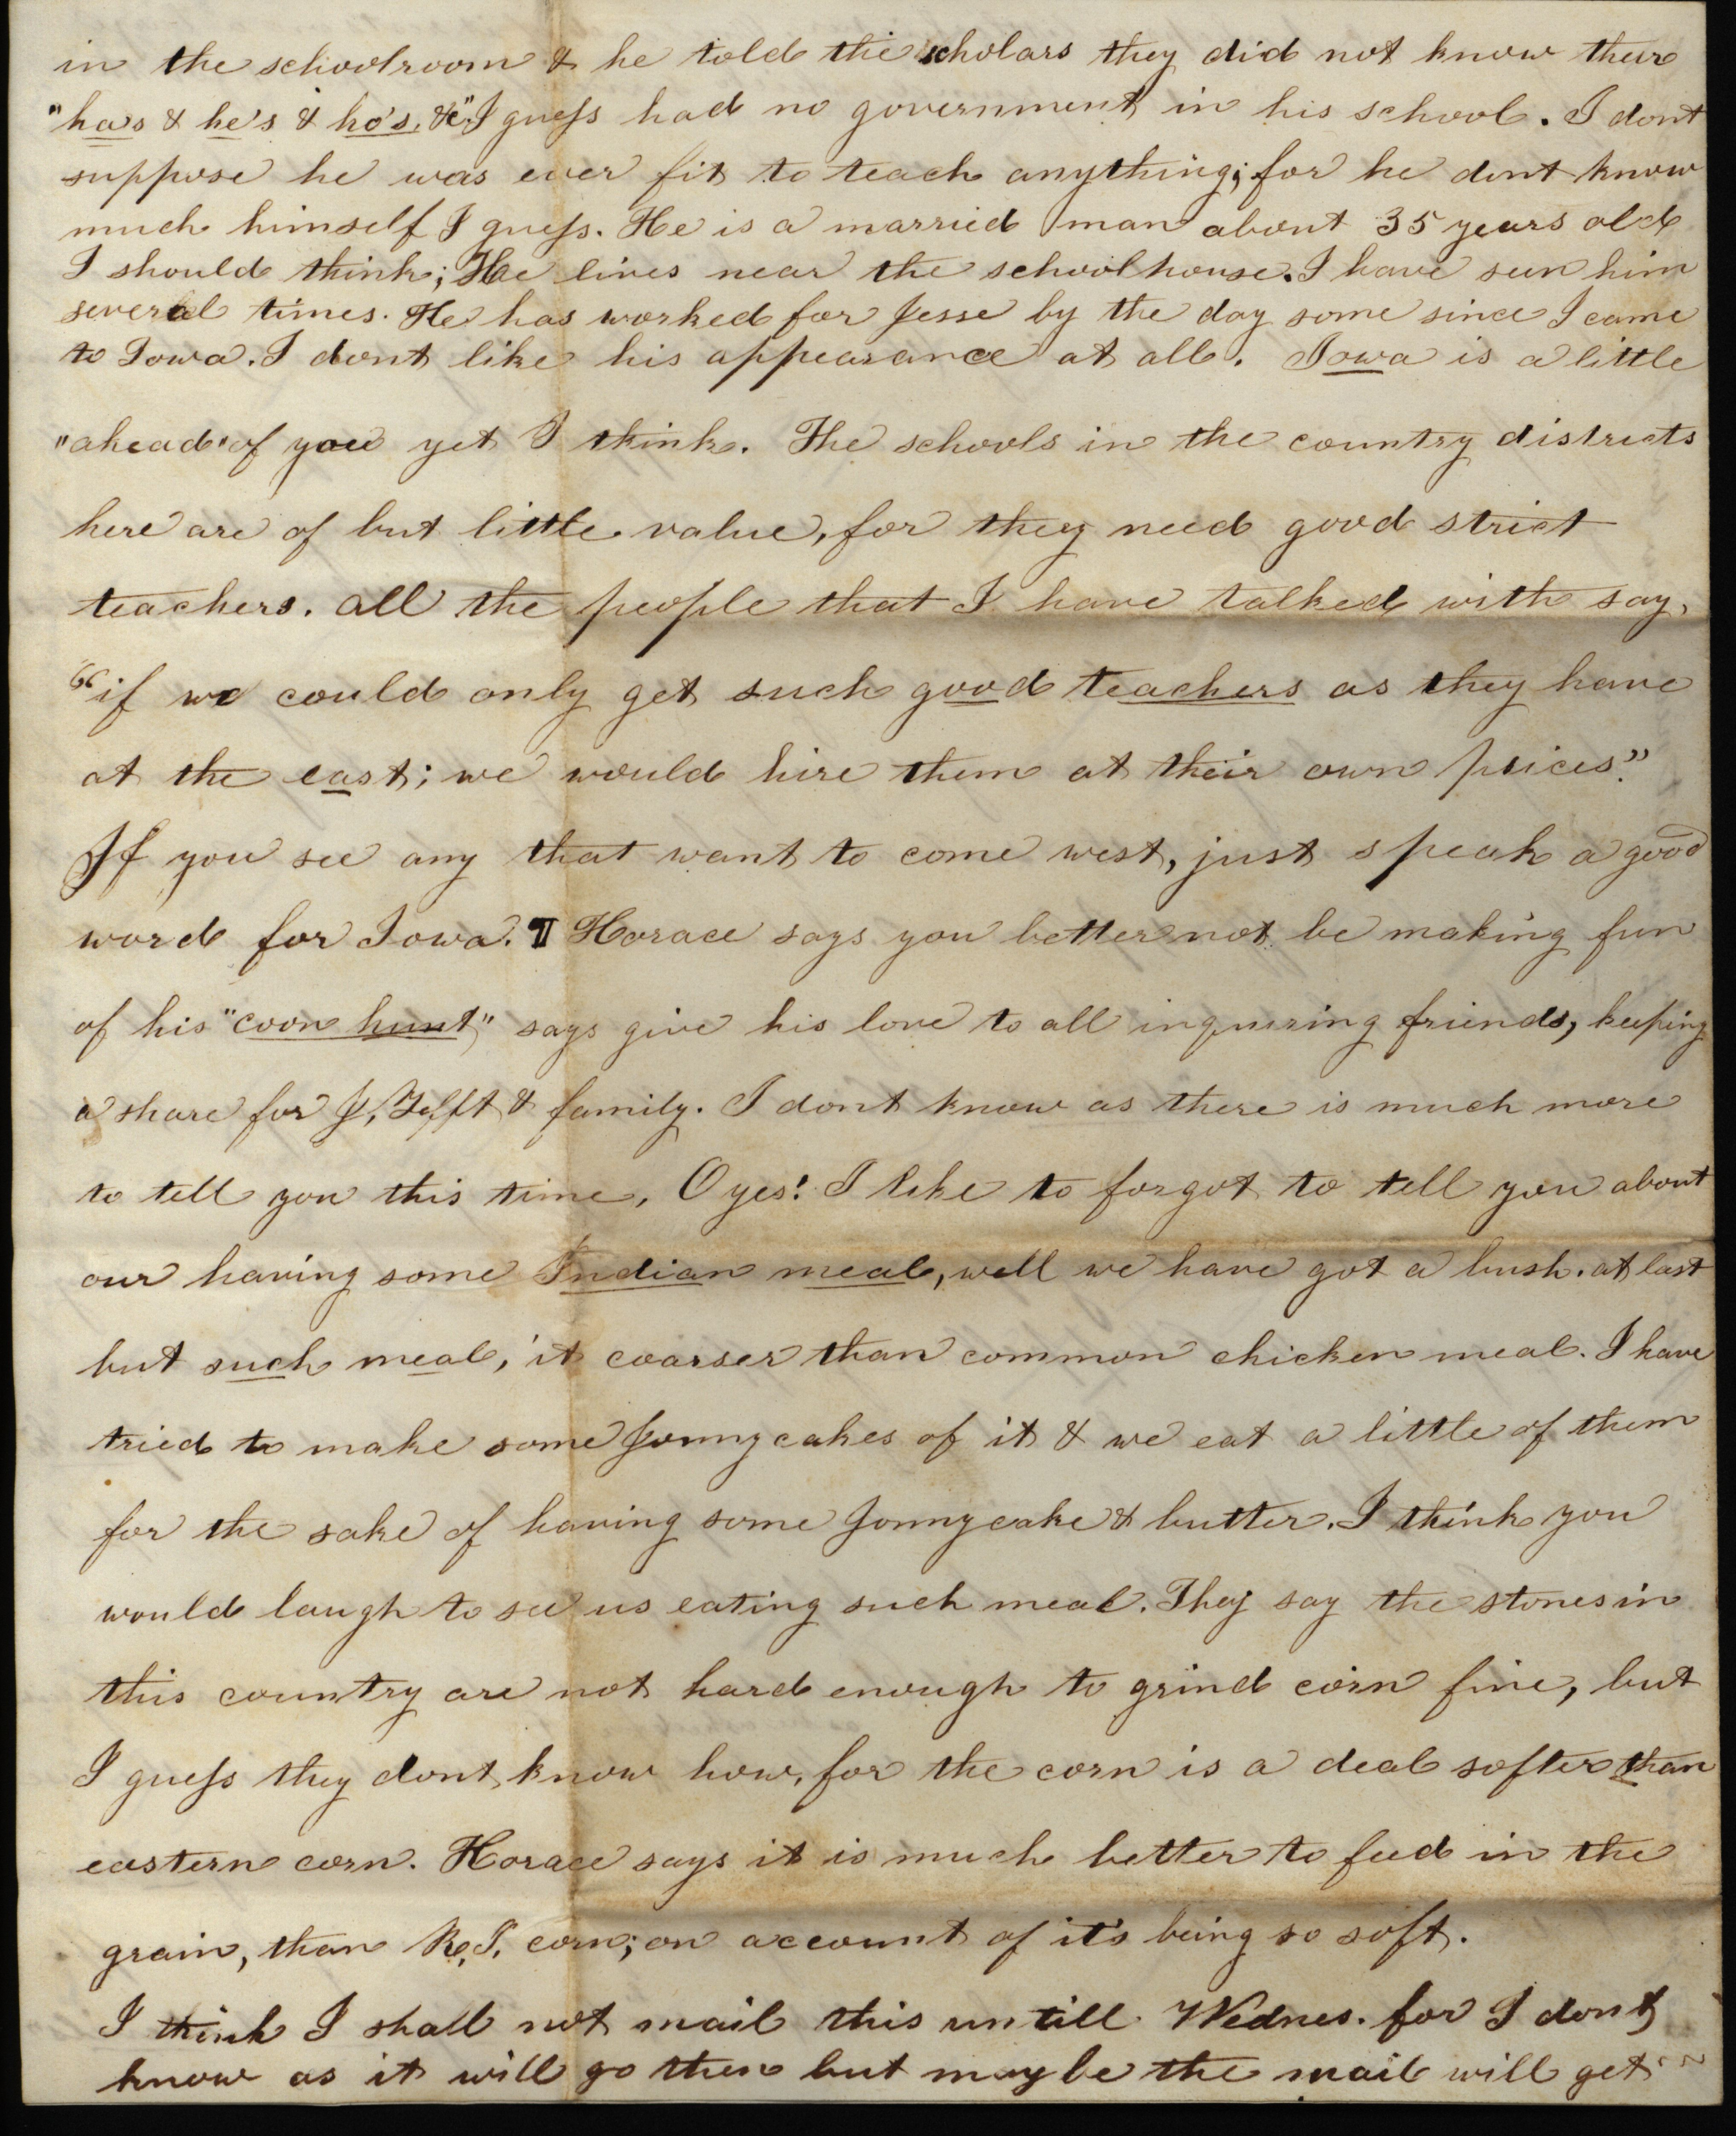 in the schoolroom & he told the scholars they did not know their
"ha's & he's & ho's, &c". I guess had no government in his school. I dont
suppose he was ever fit to teach anything; for he dont know
much himself I guess. He is a married man about 35 years old
I should think; He lives near the schoolhouse. I have seen him
several times. He has worked for Jesse by the day some since I came
to Iowa. I dont like his appearance at all. Iowa is a little
"ahead" of you yet I think. The schools in the country districts
here are of but little value, for they need good strict
teachers. all the people that I have talked with say,
"if we could only get such good teachers as they have
at the east; we would hire them at their own prices."
If you see any that want to come west, just speak a good
word for Iowa. ¶ Horace says you better not be making fun
of his "coon hunt" says give his love to all inquiring friends, keeping
a share for J. Tefft & family. I dont know as there is much more
to tell you this time, O yes! I like to forgot to tell you about
our having some Indian meal, well we have got a bush. at last
but such meal, it coarser than common chicken meal. I have
tried to make some Jonnycakes of it & we eat a little of them
for the sake of having some Jonnycake & butter. I think you
would laugh to see us eating such meal. They say the stones in
this country are not hard enough to grind corn fine, but
I guess they dont know how, for the corn is a deal softer than
eastern corn. Horace says it is much better to feed in the
grain, than R.I. corn; on account of it's being so soft.
I think I shall not mail this untill Wednes. for I dont
know as it will go then but maybe the mail will get